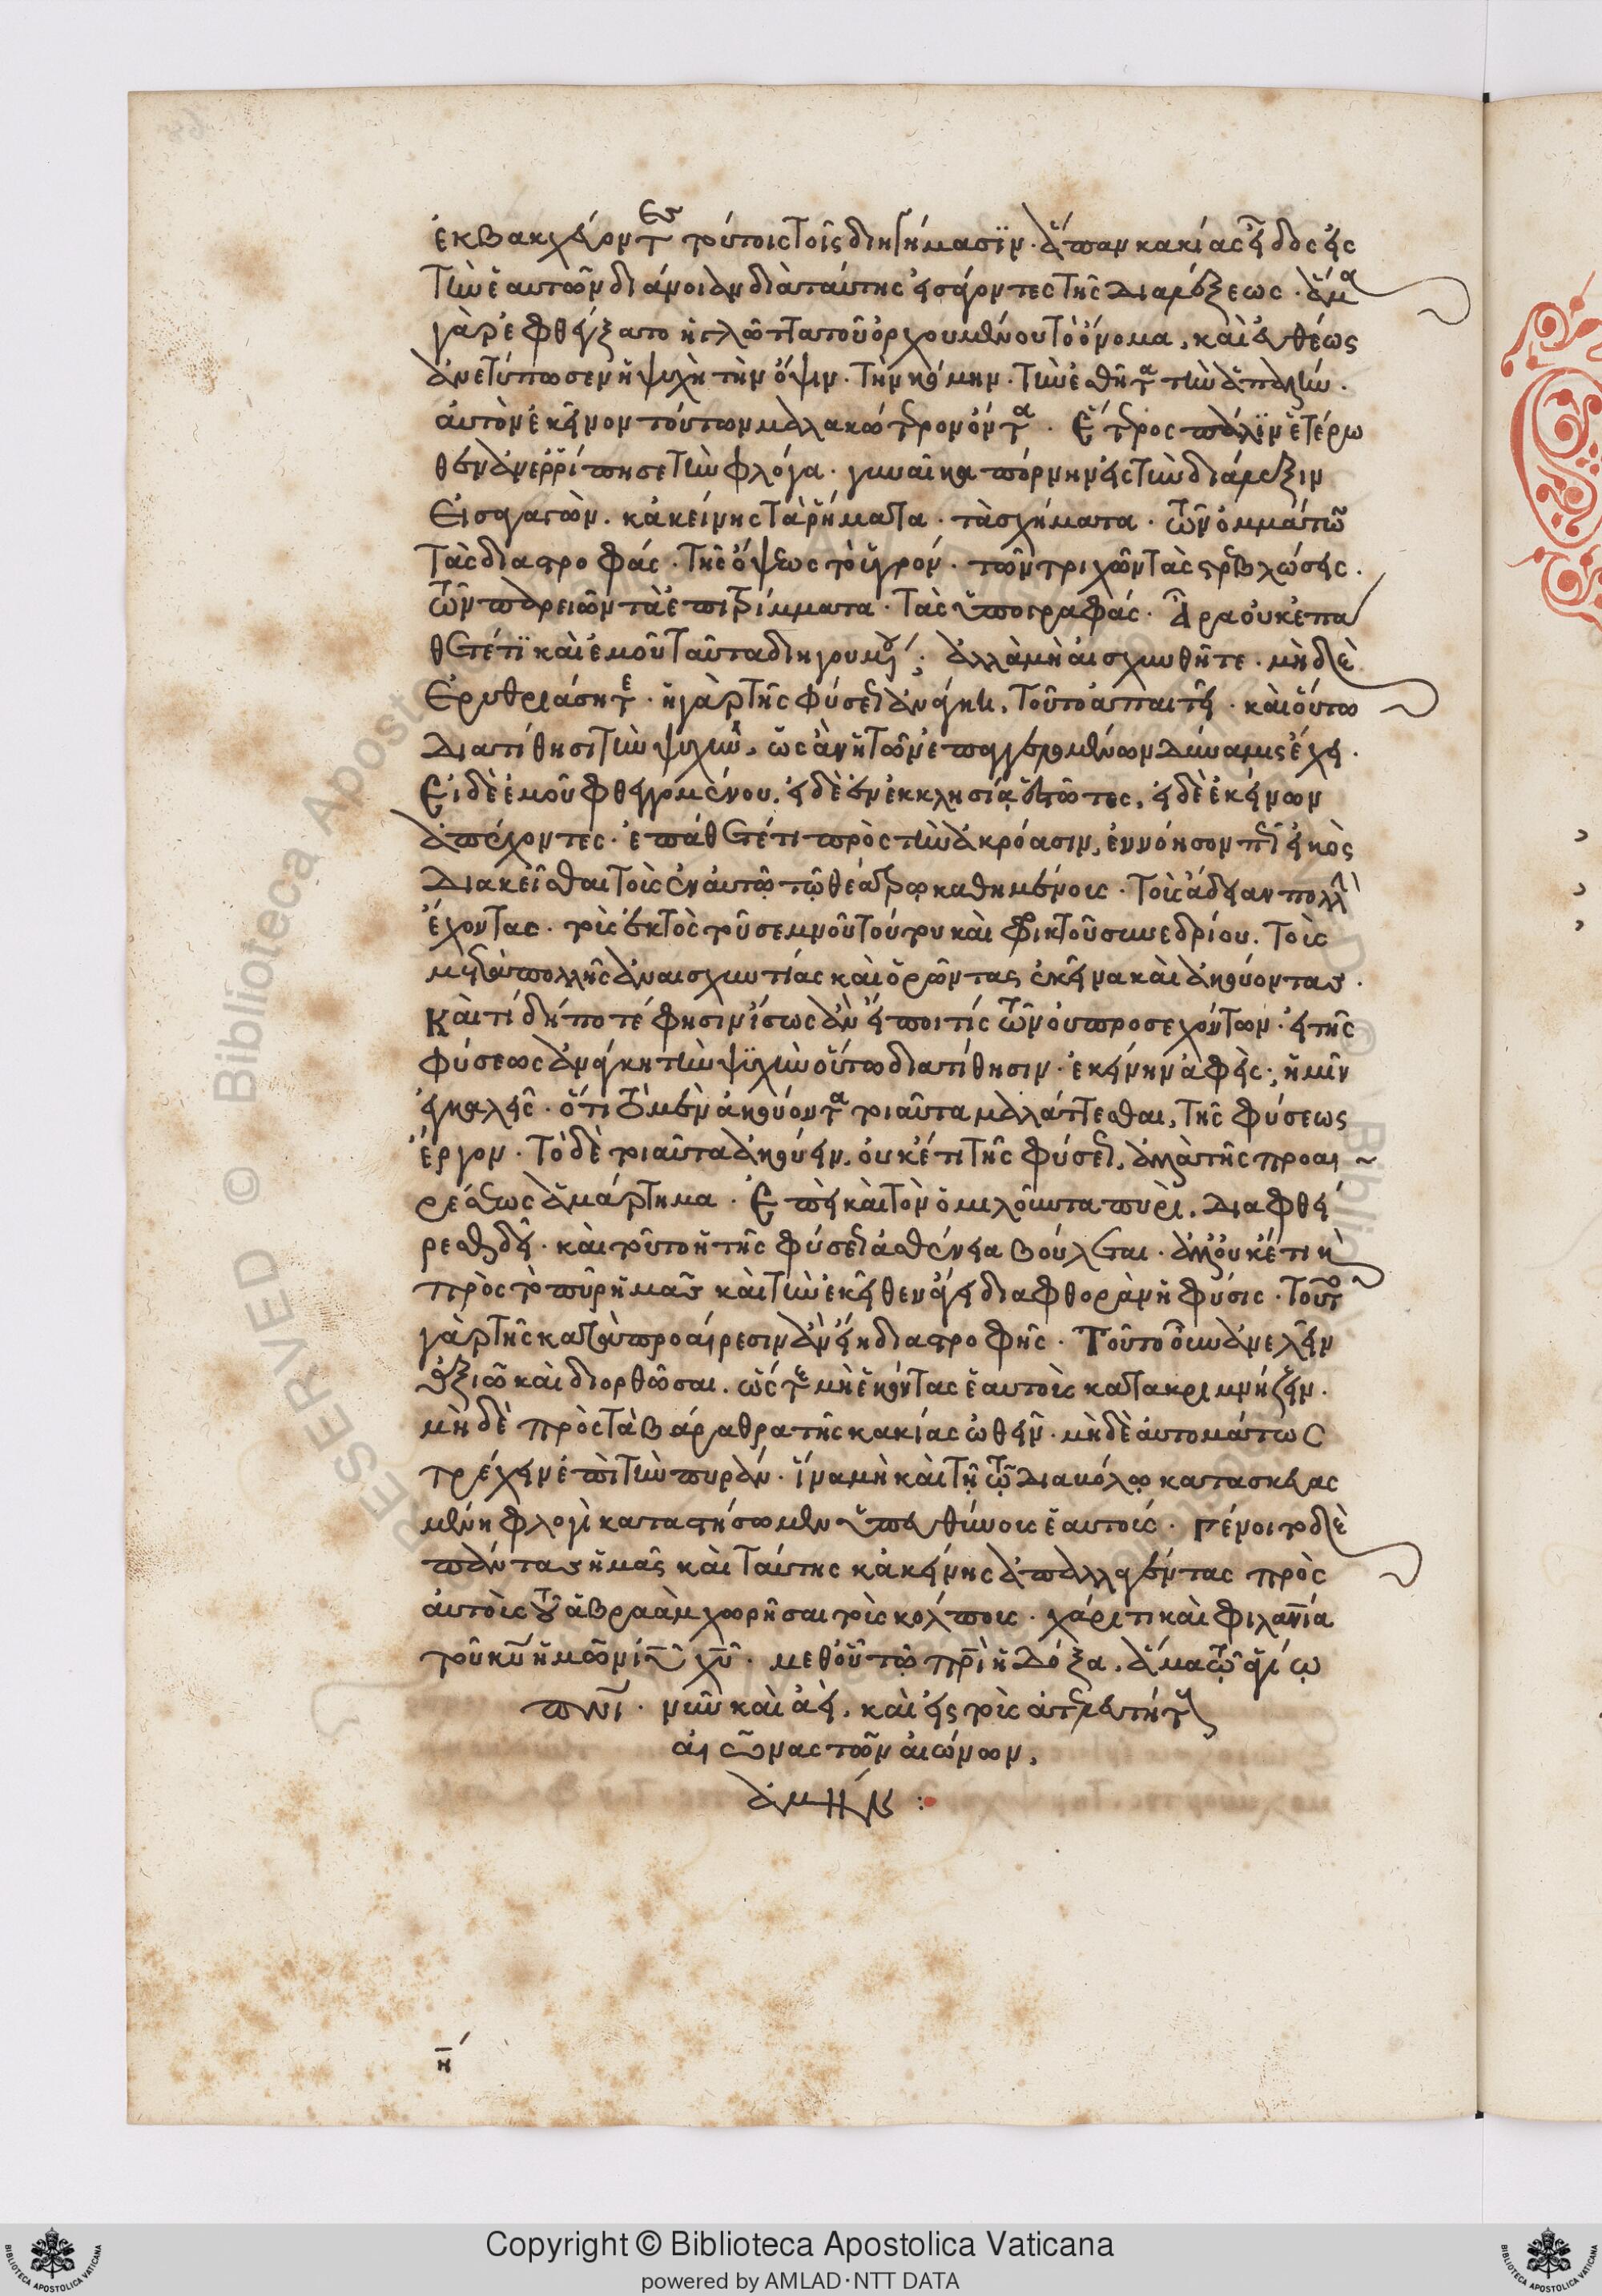 ἐκβακχεύοντες τούτοις τοῖς διηγήμασϊν. ἅπαν κακίας εἶδος εἰς
τὴν ἑαυτῶν διάνοιαν διὰ ταύτης εἰσάγοντες τῆς διαλέξεως. ἅμα
γὰρ ἐφθέγξατο ἡ γλῶττα τοῦ ὀρχουμένου τὸ ὄνομα, καὶ εὐθέως
ἀνετύπωσεν ἡ ψυχὴ τὴν ὄψιν. τὴν κόμην. τὴν ἐσθῆτα τὴν ἁπαλήν.
αὐτὸν ἐκεῖνον τούτων μαλακώτερον ὄντα. Ἕτερος πάλϊν ἑτέρω
θεν ἀνερρίπησε τὴν φλόγα. γυναῖκα πόρνην εἰς τὴν διάλεξιν
εἰσαγαγών. κἀκείνης τὰ ῥήματα. τὰ σχήματα. τῶν ὀμμάτων
τὰς διαστροφάς. τῆς ὄψεως τὸ ὑγρόν. τῶν τριχῶν τὰς στρεβλώσεις.
τῶν παρειῶν τὰ ἐπιτρίμματα. τὰς ὑπογραφάς. Ἆρα οὐκ ἐπά
θετέ τϊ καὶ ἐμοῦ ταῦτα διηγουμένου; ἀλλὰ μὴ αἰσχυνθῆτε. μὴ δὲ
ἐρυθριάσητε. ἡ γὰρ τῆς φύσεως ἀνάγκη, τοῦτο ἀπαιτεῖ. καὶ οὕτω
διατίθησι τὴν ψυχὴν, ὡς ἂν ἡ τῶν ἐπαγγελομένων δύναμις ἔχει.
Εἰ δὲ ἐμοῦ φθεγγομένου, εἰ δὲ ἐν ἐκκλησίᾳ ἑστῶτες, εἰ δὲ ἐκείνων
ἀπέχοντες. ἐπάθετέ τι πρὸς τὴν ἀκρόασιν, ἐννόησον πῶς εἰκὸς
διακεῖσθαι τοὺς ἐν αὐτῷ τῷ θεάτρῳ καθημένους. τοὺς ἄδειαν πολλὴν
ἔχοντας. τοὺς ἐκτὸς τοῦ σεμνοῦ τούτου καὶ φρικτοῦ συνεδρίου. τοὺς
μετὰ πολλῆς ἀναισχυντίας καὶ ὁρῶντας ἐκεῖνα καὶ ἀκούοντας.
Καὶ τί δή ποτέ φησιν ἴσως ἂν εἴποι τίς τῶν οὐ προσεχόντων. εἰ τῆς
φύσεως ἀνάγκη τὴν ψϋχὴν οὕτω διατίθησιν. ἐκείνην ἀφεὶς, ἡμῖν
ἐγκαλεῖς. ὅτι τὸ μὲν ἀκούοντα τοιαῦτα μαλάττεσθαι, τῆς φύσεως
ἔργον. τὸ δὲ τοιαῦτα ἀκούειν, οὐκέτι τῆς φύσεως, ἀλλὰ τῆς προαι~
ρέσεως ἁμάρτημα. Ἐπεὶ καὶ τὸν ὁμιλοῦντα πυρὶ, διαφθεί
ρεσθαι δεῖ. καὶ τοῦτο ἡ τῆς φύσεως ἀσθένεια βούλεται. ἀλλ' οὐκέτι καὶ
πρὸς τὸ πῦρ ἡμᾶς καὶ τὴν ἐκεῖθεν ἄγει διαφθορὰν ἡ φύσις. τοῦτο
γὰρ τῆς κατὰ προαίρεσιν ἂν εἴη διαστροφῆς. Τοῦτο οὖν ἀνελεῖν
ἀξιῶ καὶ διορθῶσαι. ὥστε μὴ ἑκόντας ἑαυτοὺς κατακρημνίζειν.
μὴ δὲ πρὸς τὰ βάραθρα τῆς κακίας ὠθεῖν. μὴ δὲ αὐτομάτως
τρέχειν ἐπὶ τὴν πυράν. ἵνα μὴ καὶ τῇ τῷ διαβόλῳ κατασκευας
μένῃ φλογὶ καταστήσωμεν ὑπευθύνους ἑαυτούς. Γένοιτο δὲ
πάντας ἡμᾶς καὶ ταύτης κἀκείνης ἀπαλλαγέντας πρὸς
αὐτοὺς τοῦ ἀβραὰμ χωρῆσαι τοὺς κόλπους. χάριτι καὶ φιλανία
τοῦ κυ ἡμῶν ιυ χυ. μεθ' οὗ τῷ πρὶ ἡ δόξα, ἅμα τῷ ἁγίῳ
πνι. νῦν καὶ ἀεὶ, καὶ εἰς τοὺς ἀτελευτήτους
αἰῶνας τῶν αἰώνων,
ἀμήν :
η